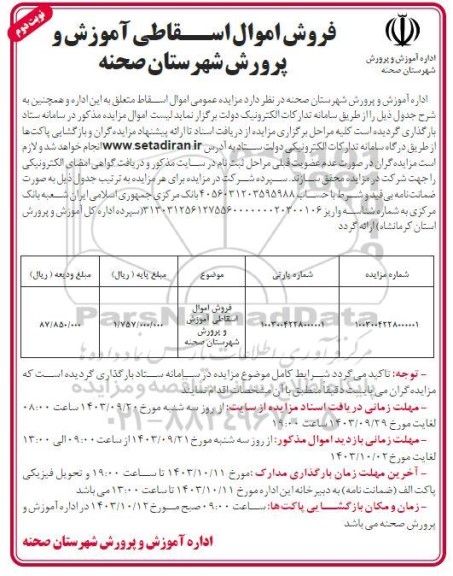 نوبت دوم
فروش اموال اسقاطی آموزش و
پرورش شهرستان صحنه
اداره آموزش و پرورش
شهرستان صحنه
اداره آموزش و پرورش شهرستان صحنه در نظر دارد مزایده عمومی اموال اسقاط متعلق به این اداره و همچنین به
شرح جدول ذیل را از طریق سامانه تدارکات الکترونیک دولت برگزار نماید لیست اموال مزایده مذکور در سامانه ستاد
بارگذاری گردیده است کلیه مراحل برگزاری مزایده از دریافت اسناد تا ارائه پیشنهاد مزایده گران و بازگشایی پاکت‌ها
از طریق درگاه سامانه تدارکات الکترونیکی دولت ستاد به آدرس www.setadiran.ir انجام خواهد شد و لازم
است مزایده گران در صورت عدم عضویت قبلی مراحل ثبت نام در سایت مذکور و دریافت گواهی امضای الکترونیکی
را جهت شرکت در مزایده محقق سازند. سپرده شرکت در مزایده برای هر مزایده به ترتیب جدول ذیل به صورت
ضمانت نامه بی قید و شرط یا حساب ۴۰۵۶۰۳۱۲۰۳۵۹۵۹۸۸ بانک مرکزی جمهوری اسلامی ایران شعبه بانک
مرکزی به شماره شناسه واریز (سپرده اداره کل آموزش و پرورش
استان کرمانشاه) ارائه گردد
شماره مزایده شماره پارتی موضوع مبلغ پایه (ریال) مبلغ ودیعه (ریال)
۱۰۰۳۰۰۴۲۲۸۰۰۰۰۰۱ ۱۰۰۳۰۰۴۲۲۸۰۰۰۰۰۱ فروش اموال اسقاطی آموزش و پرورش شهرستان صحنه ۱/۷۵۷/۰۰۰/۰۰۰ ۸۷/۸۵۰/۰۰۰
- توجه: تاکید می گردد شرایط کامل موضوع مزایده در سامانه ستاد بارگذاری گردیده است که
مزایده گران می بایست دقیقا منطبق با آن مشخصات اقدام نمایند
- مهلت زمانی دریافت اسناد مزایده از سایت: از روز سه شنبه مورخ ۱۴۰۳/۰۹/۲۰ ساعت ۰۸:۰۰
لغایت مورخ ۱۴۰۳/۰۹/۲۹ ساعت ۱۹:۰۰
- مهلت زمانی بازدید اموال مذکور: از روز سه شنبه مورخ ۱۴۰۳/۰۹/۲۱ از ساعت ۰۹:۰۰ الی ۱۳:۰۰
لغایت مورخ ۱۴۰۳/۱۰/۰۲
- آخرین مهلت زمان بارگذاری مدارک: مورخ ۱۴۰۳/۱۰/۱۱ تا ساعت ۱۹:۰۰ و تحویل فیزیکی
پاکت الف (ضمانت نامه) به دبیرخانه این اداره مورخ ۱۴۰۳/۱۰/۱۱ تا ساعت ۱۳:۰۰ می باشد
- زمان و مکان بازگشایی پاکت‌ها: ساعت ۰۹:۰۰ صبح مورخ ۱۴۰۳/۱۰/۱۲ در اداره آموزش و
پرورش صحنه می باشد
اداره آموزش و پرورش شهرستان صحنه
ParsNamadData
مرکز فرآوری اطلاعات پارس نماد داده‌ها
۰۲۱-۸۸۳۴۹۶۷۰-۵